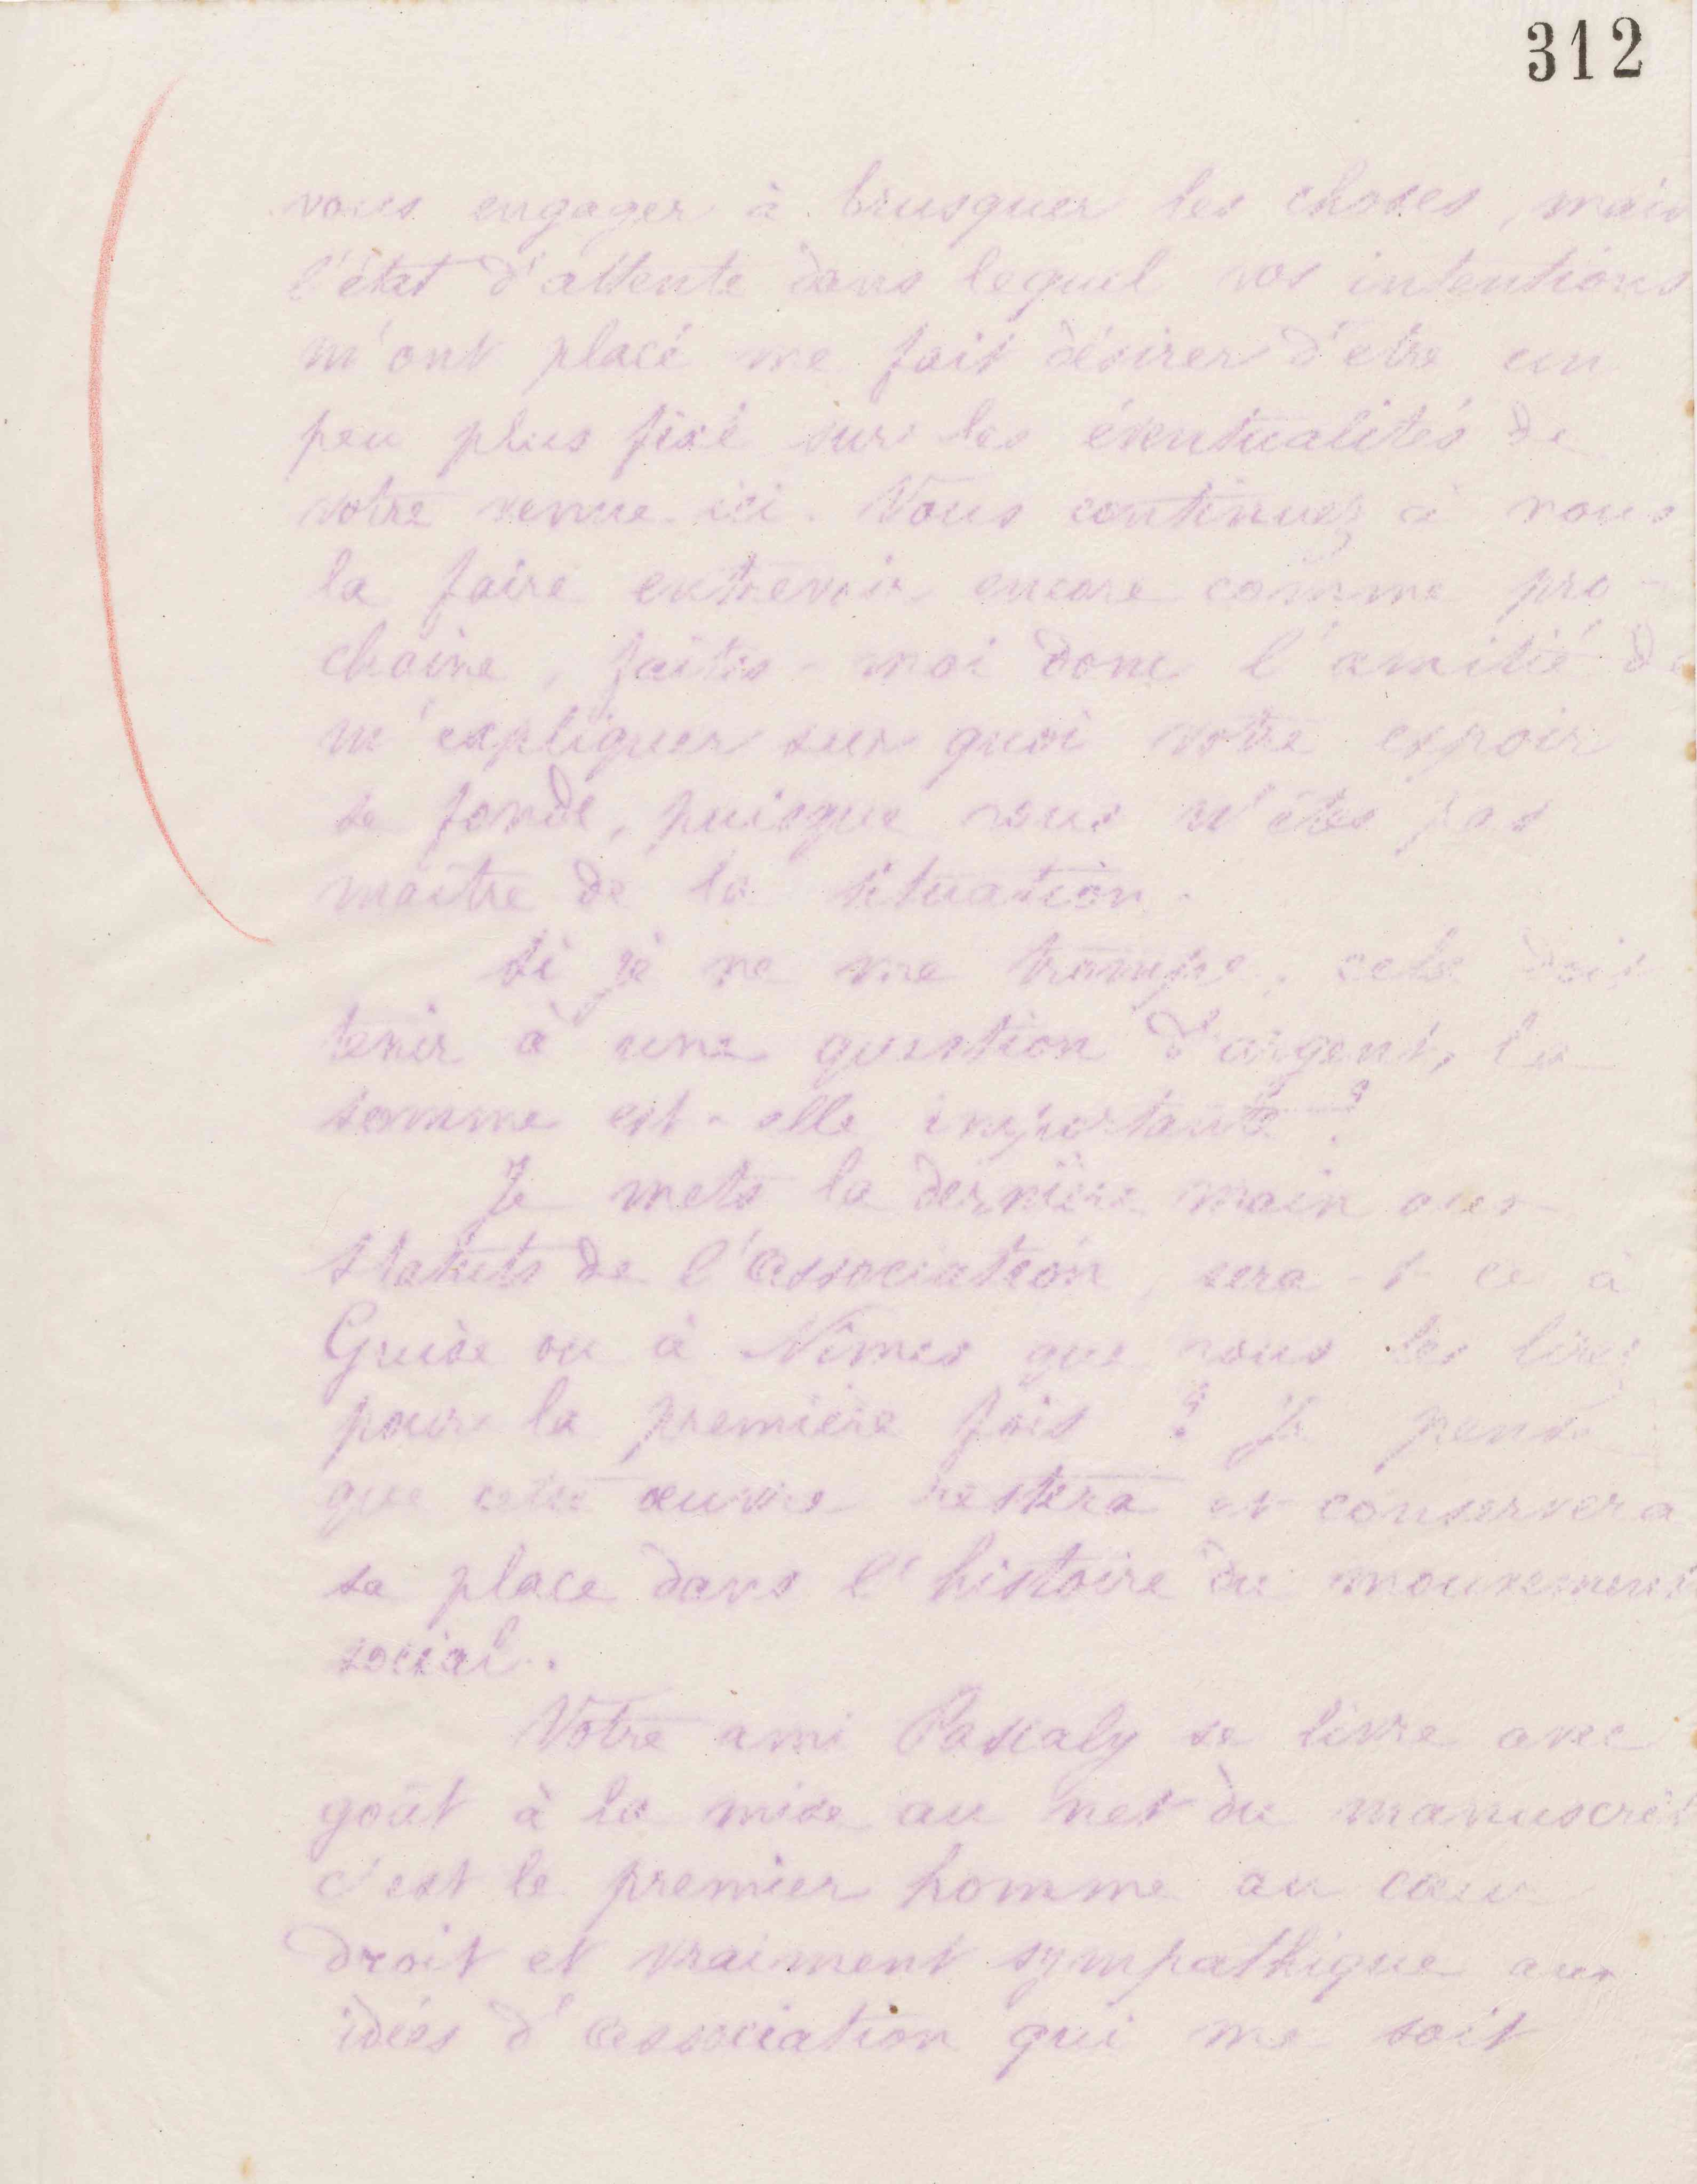 312
vous engager à brusquer les choses, mais
l'état d'attente dans lequel vos intentions
m'ont placé me fait désirer d'etre un
peu plus fixé sur les éventualités de
votre venue ici. Vous continuez à nous
la faire entrevoir encore comme pro-
chaine, faites-moi donc l'amitié de
m'expliquer sur quoi votre espoir
se fonde, puisque vous n'êtes pas
maître de la situation.
Si je ne me trompe, cela doit
tenir à une question d'argent, la
somme est-elle importante ?
Je mets la dernière main aux
statuts de l'association, sera-t-ce à
Guise ou à Nîmes que vous les lirez
pour la première fois ? Je pense
que cette œuvre restera et conservera
sa place dans l'histoire du mouvement
social.
Votre ami Pascaly se livre avec
goût à la mise au net du manuscrit
c'est le premier homme au cœur
droit et vraiment sympathique aux
idées d'association qui me soit